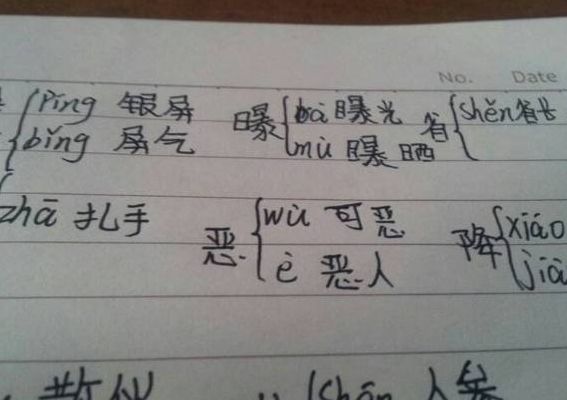 No. Date
píng 银屏 曝 bào 曝光 省 shěn 省长
bǐng 屏气 pù 曝晒
zhā 扎手 恶 wù 可恶 降 xiáo
è 恶人 jià
散 人参